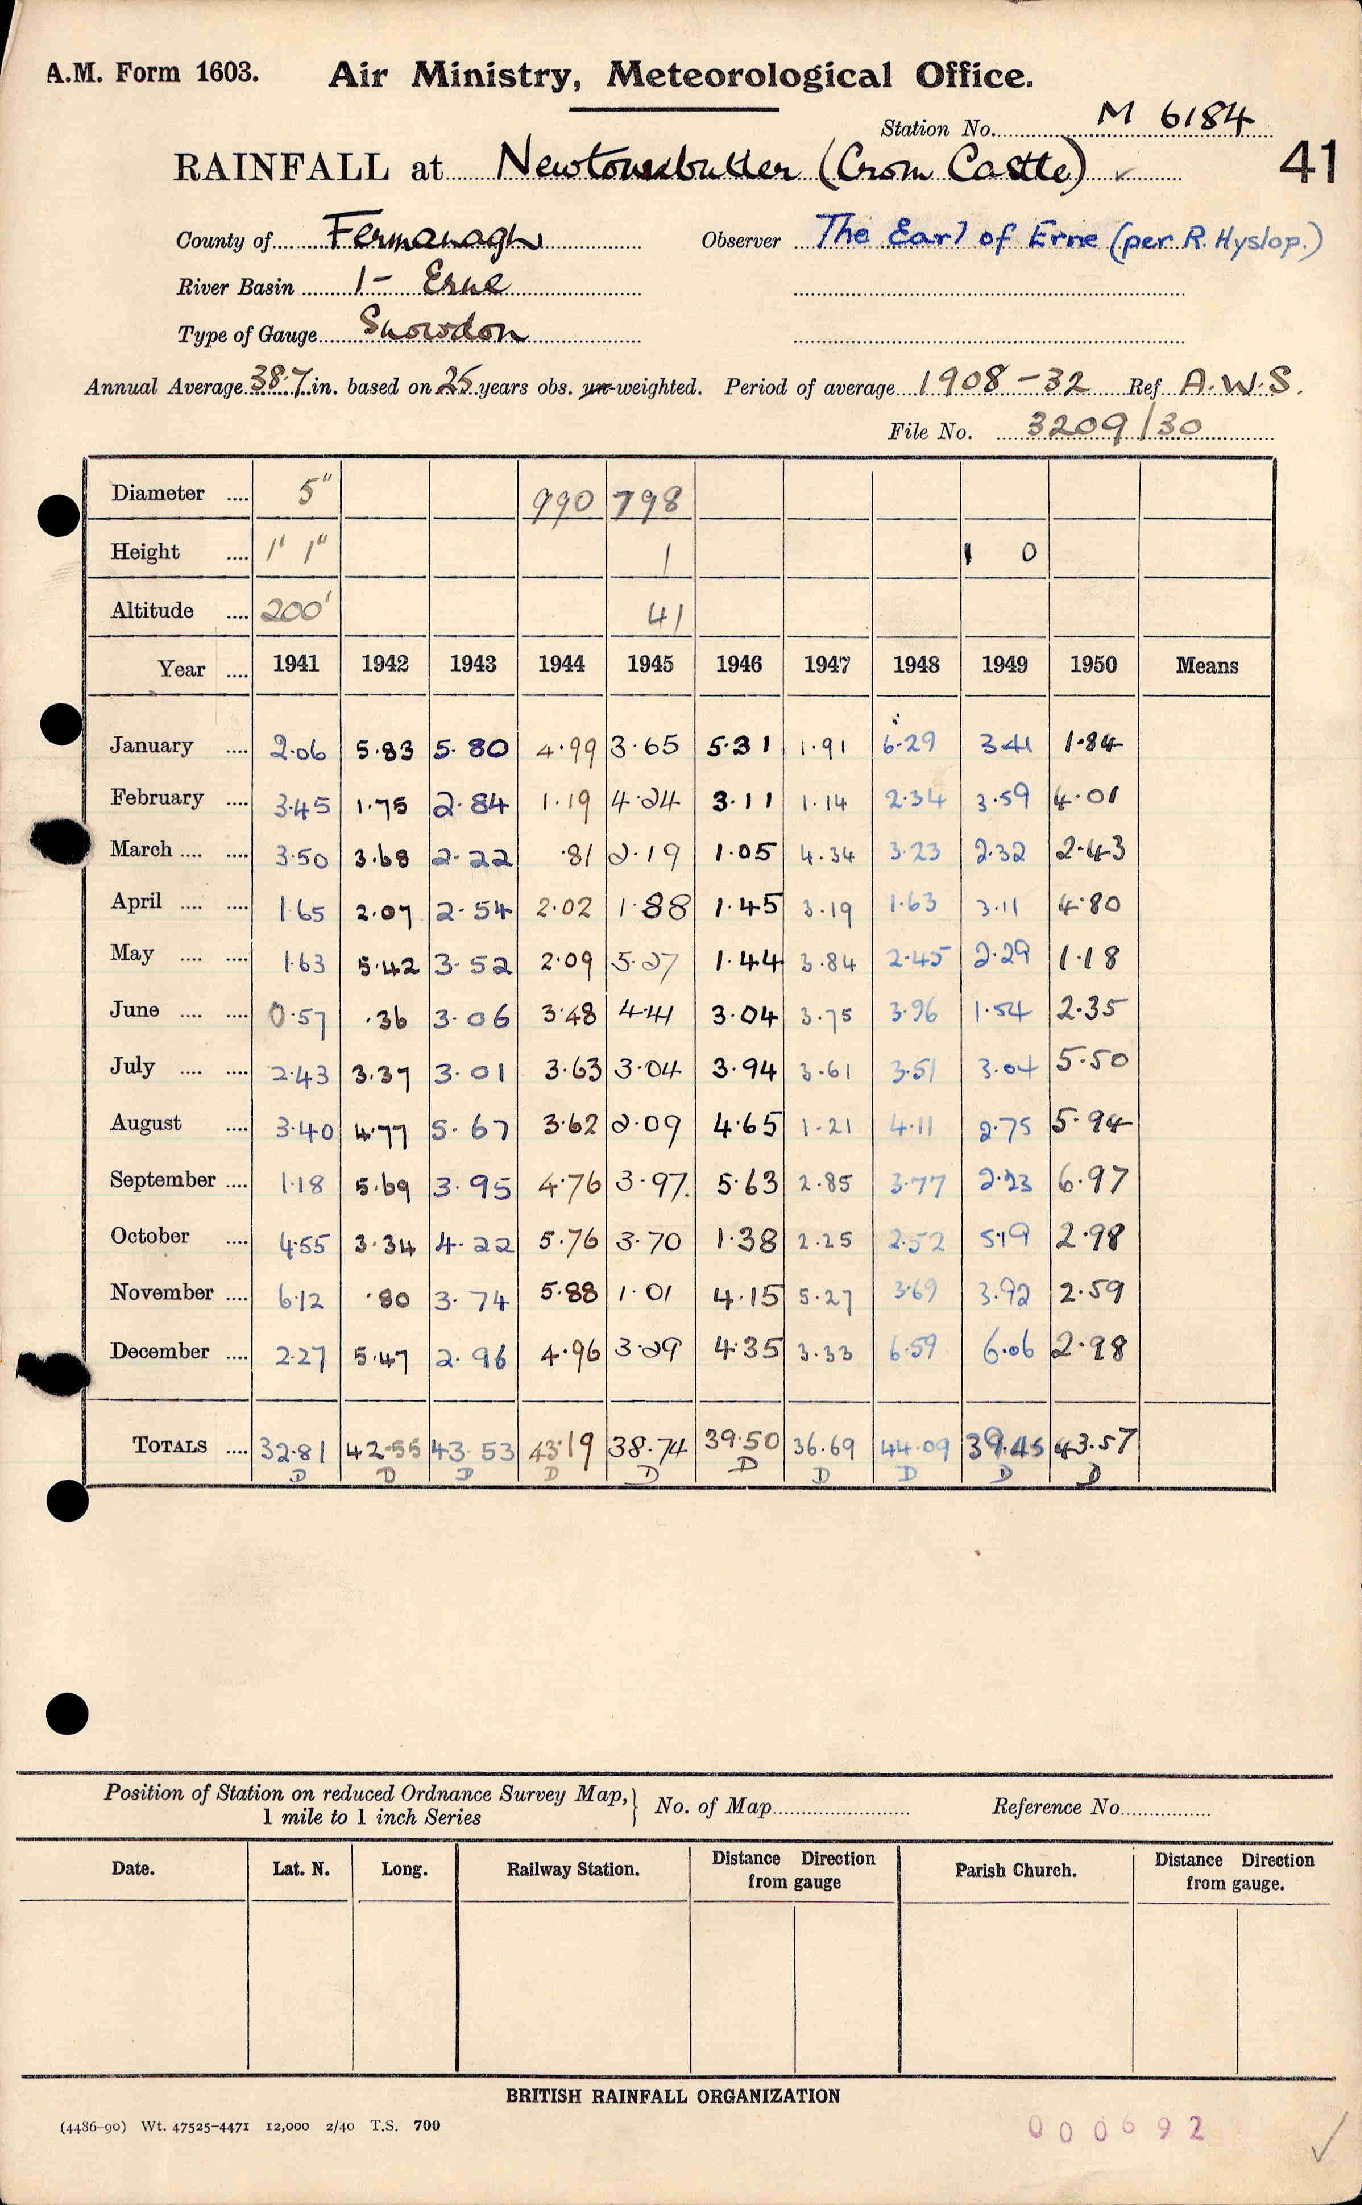 A.M. Form 1603. Air Ministry, Meteorological Office.
Station No. M 6184
RAINFALL at Newtownbutler (Crom Castle) ✓ 41
County of Fermanagh Observer The Earl of Erne (per R. Hyslop.)
River Basin 1 - Erne
Type of Gauge Snowdon
Annual Average 38.7 in. based on 25 years obs. un-weighted. Period of average 1908-32 Ref A.W.S.
File No. 3209/30
Diameter .... 5" 990 798
Height .... 1' 1" 1 1 0
Altitude .... 200' 41
Year .... 1941 1942 1943 1944 1945 1946 1947 1948 1949 1950 Means
January .... 2.06 5.83 5.80 4.99 3.65 5.31 1.91 6.29 3.41 1.84
February .... 3.45 1.75 2.84 1.19 4.24 3.11 1.14 2.34 3.59 4.01
March .... .... 3.50 3.68 2.22 .81 2.19 1.05 4.34 3.23 2.32 2.43
April .... .... 1.65 2.07 2.54 2.02 1.88 1.45 3.19 1.63 3.11 4.80
May .... .... 1.63 5.42 3.52 2.09 5.27 1.44 3.84 2.45 2.29 1.18
June .... .... 0.57 .36 3.06 3.48 4.41 3.04 3.75 3.96 1.54 2.35
July .... .... 2.43 3.37 3.01 3.63 3.04 3.94 3.61 3.51 3.04 5.50
August .... 3.40 4.77 5.67 3.62 2.09 4.65 1.21 4.11 2.75 5.94
September .... 1.18 5.69 3.95 4.76 3.97. 5.63 2.85 3.77 2.23 6.97
October .... 4.55 3.34 4.22 5.76 3.70 1.38 2.25 2.52 5.19 2.98
November .... 6.12 .80 3.74 5.88 1.01 4.15 5.27 3.69 3.92 2.59
December .... 2.27 5.47 2.96 4.96 3.29 4.35 3.33 6.59 6.06 2.98
TOTALS .... 32.81 42.55 43.53 43.19 38.74 39.50 36.69 44.09 39.45 43.57
D D D D D D D D D D
Position of Station on reduced Ordnance Survey Map, } No. of Map Reference No.
1 mile to 1 inch Series
Date. Lat. N. Long. Railway Station. Distance Direction from gauge Parish Church. Distance Direction from gauge.
BRITISH RAINFALL ORGANIZATION
(4486-90) Wt. 47525-4471 12,000 2/40 T.S. 700
000692 ✓